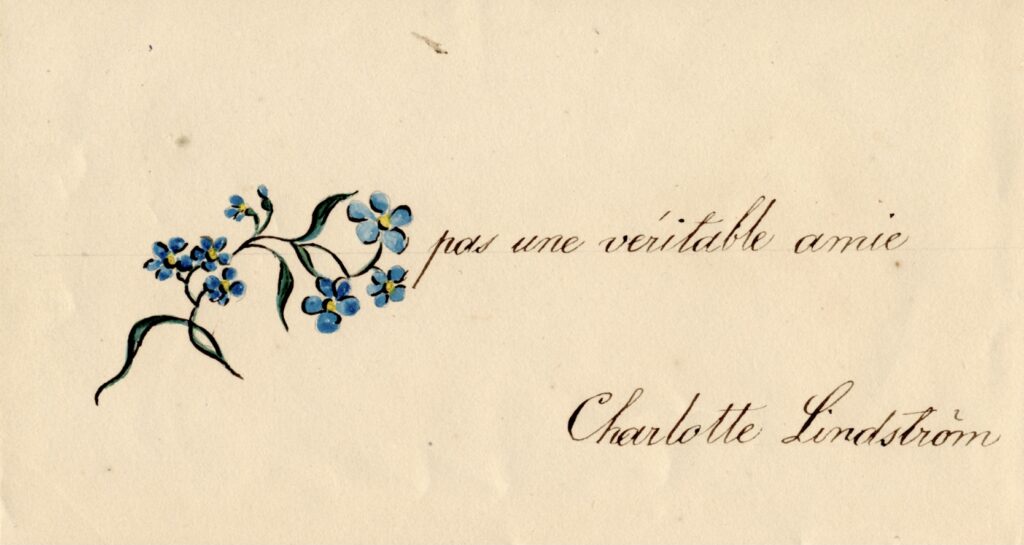 pas une véritable amie
Charlotte Lindström